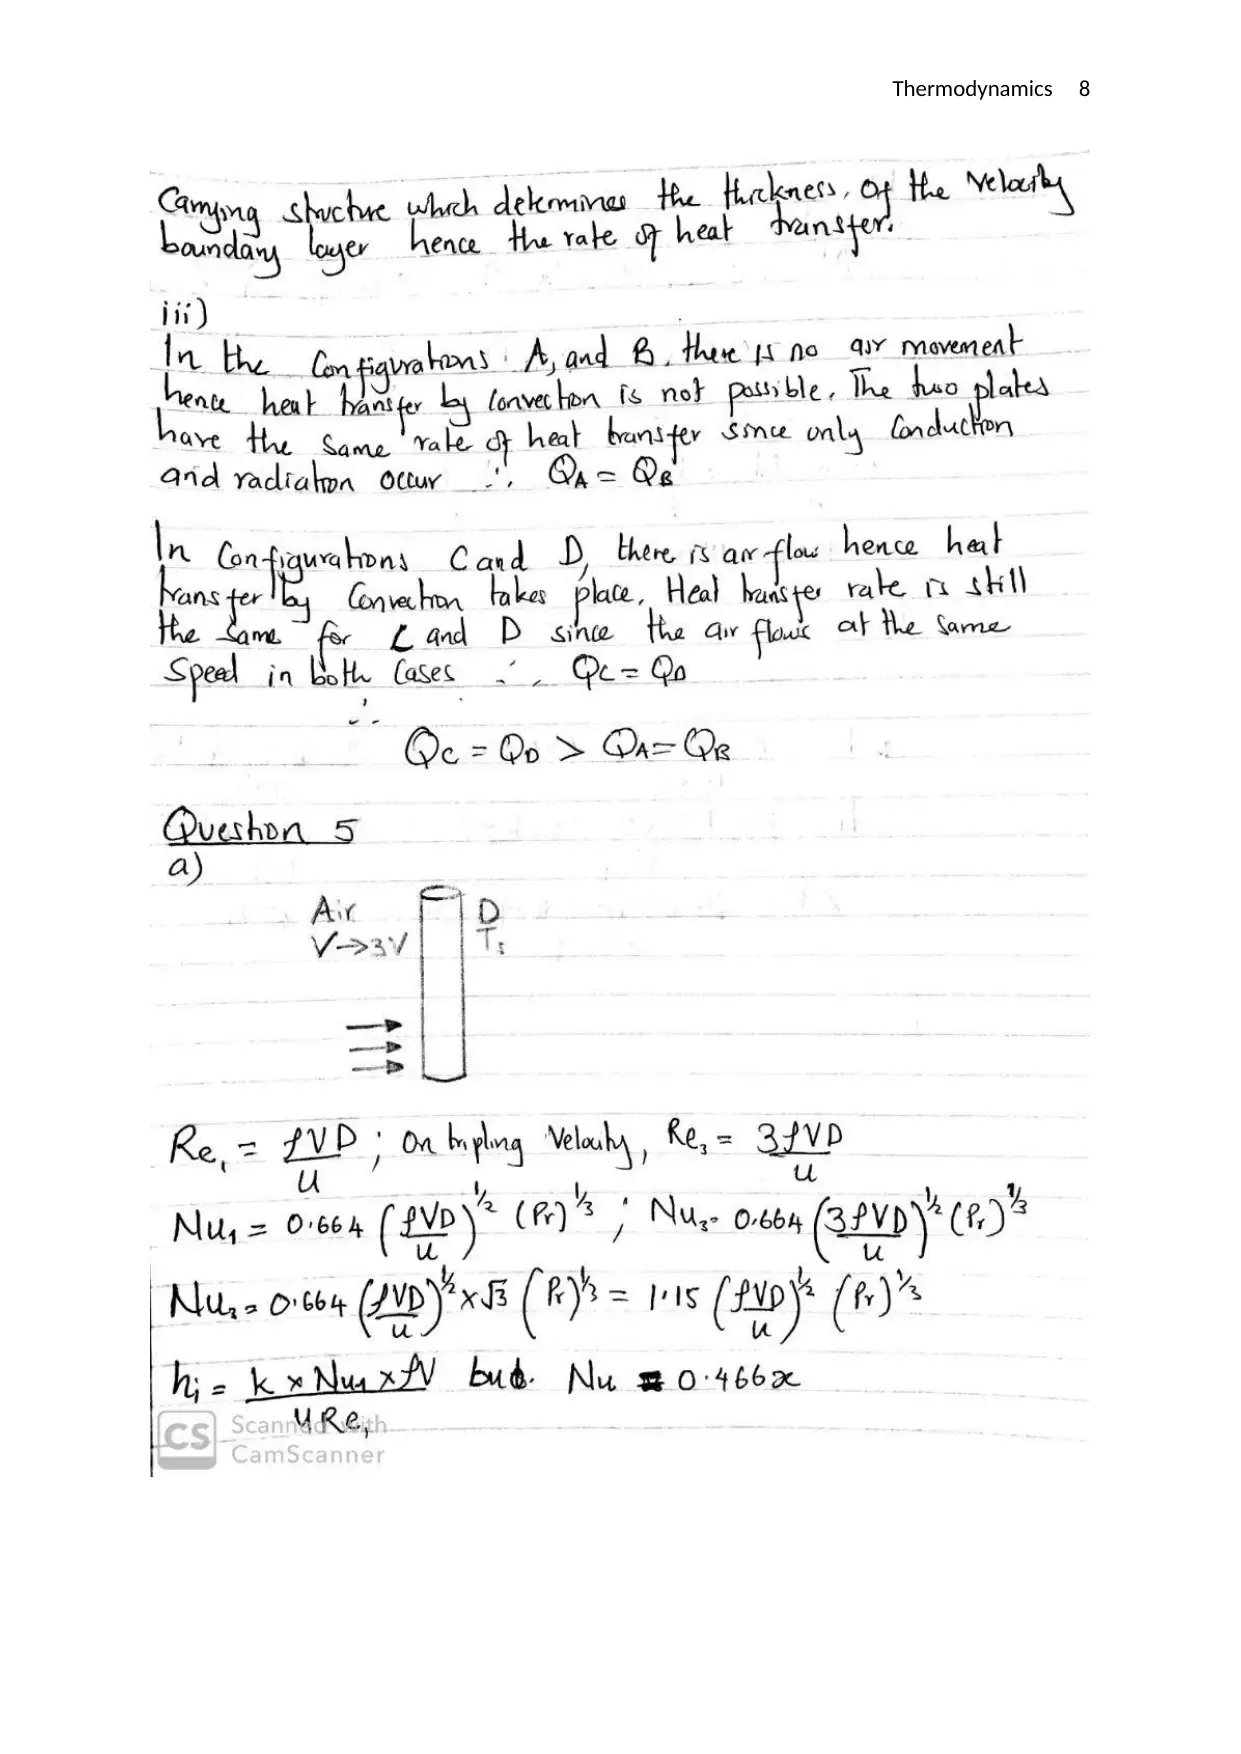 Thermodynamics 8
Carrying structure which determines the thickness, of the velocity
boundary layer hence the rate of heat transfer.
iii)
In the Configurations A, and B, there is no air movement
hence heat transfer by convection is not possible. The two plates
have the same rate of heat transfer since only Conduction
and radiation occur ∴ QA = QB
In Configurations C and D, there is air flow hence heat
transfer by Convection takes place. Heat transfer rate is still
the same for C and D since the air flows at the same
speed in both Cases ∴ QC = QD
∴
QC = QD > QA = QB
Question 5
a)
Air D
V→3V Ts
Re₁ = ρVD/u ; On tripling Velocity, Re₃ = 3ρVD/u
Nu₁ = 0.664 (ρVD/u)^½ (Pr)^⅓ ; Nu₃ = 0.664 (3ρVD/u)^½ (Pr)^⅓
Nu₃ = 0.664 (ρVD/u)^½ × √3 (Pr)^⅓ = 1.15 (ρVD/u)^½ (Pr)^⅓
h₁ = k × Nu₁ × ρV / u Re₁ but. Nu = 0.466x
CS Scanned with
CamScanner